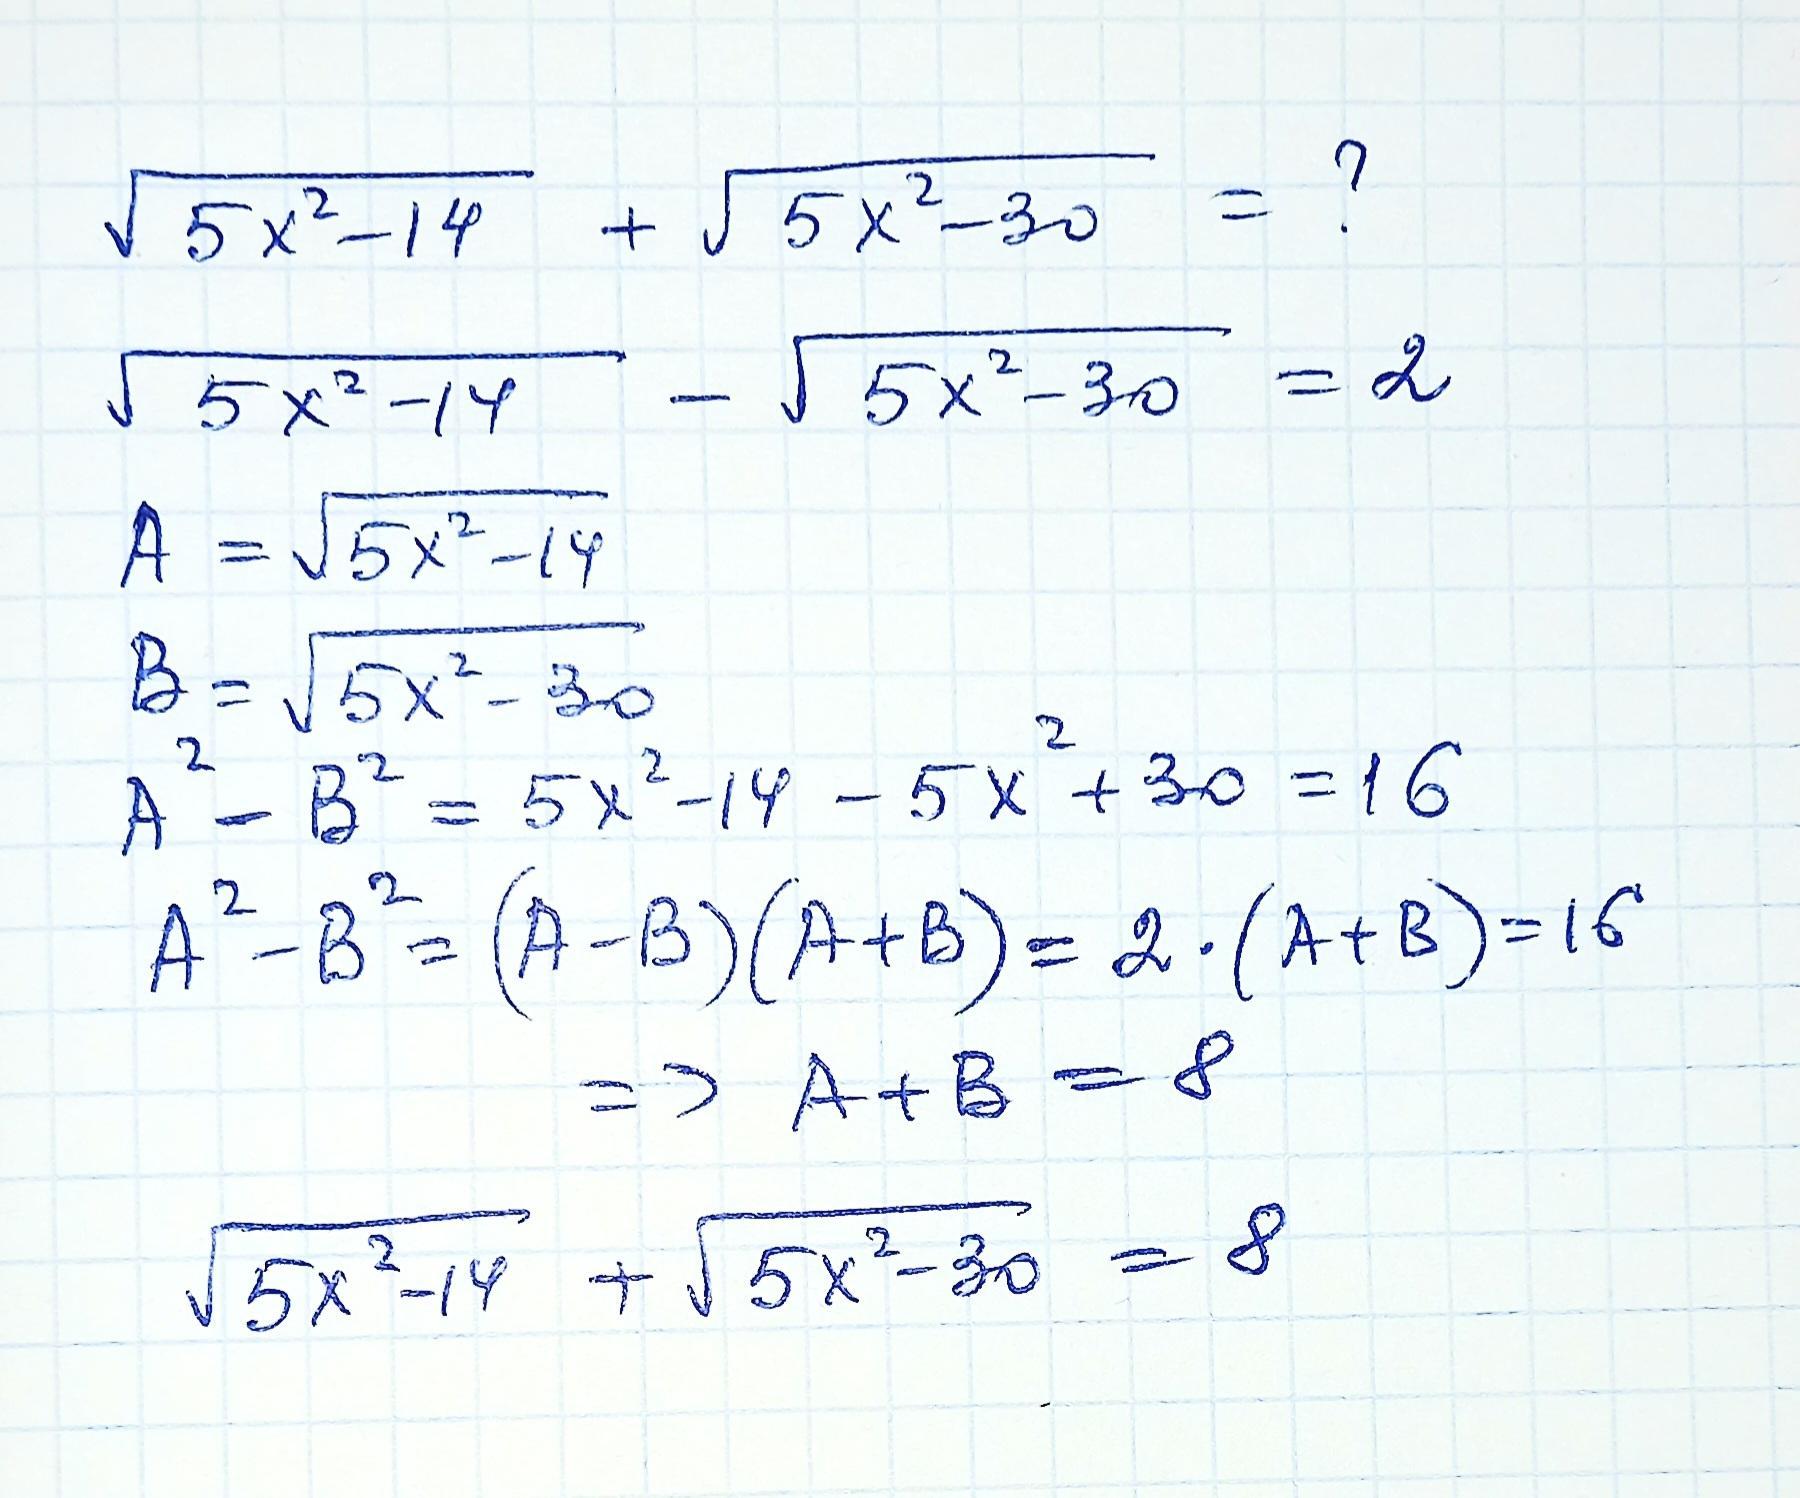 √(5x²-14) + √(5x²-30) = ?
√(5x²-14) - √(5x²-30) = 2
A = √(5x²-14)
B = √(5x²-30)
A² - B² = 5x²-14 - 5x²+30 = 16
A² - B² = (A-B)(A+B) = 2·(A+B) = 16
=> A+B = 8
√(5x²-14) + √(5x²-30) = 8